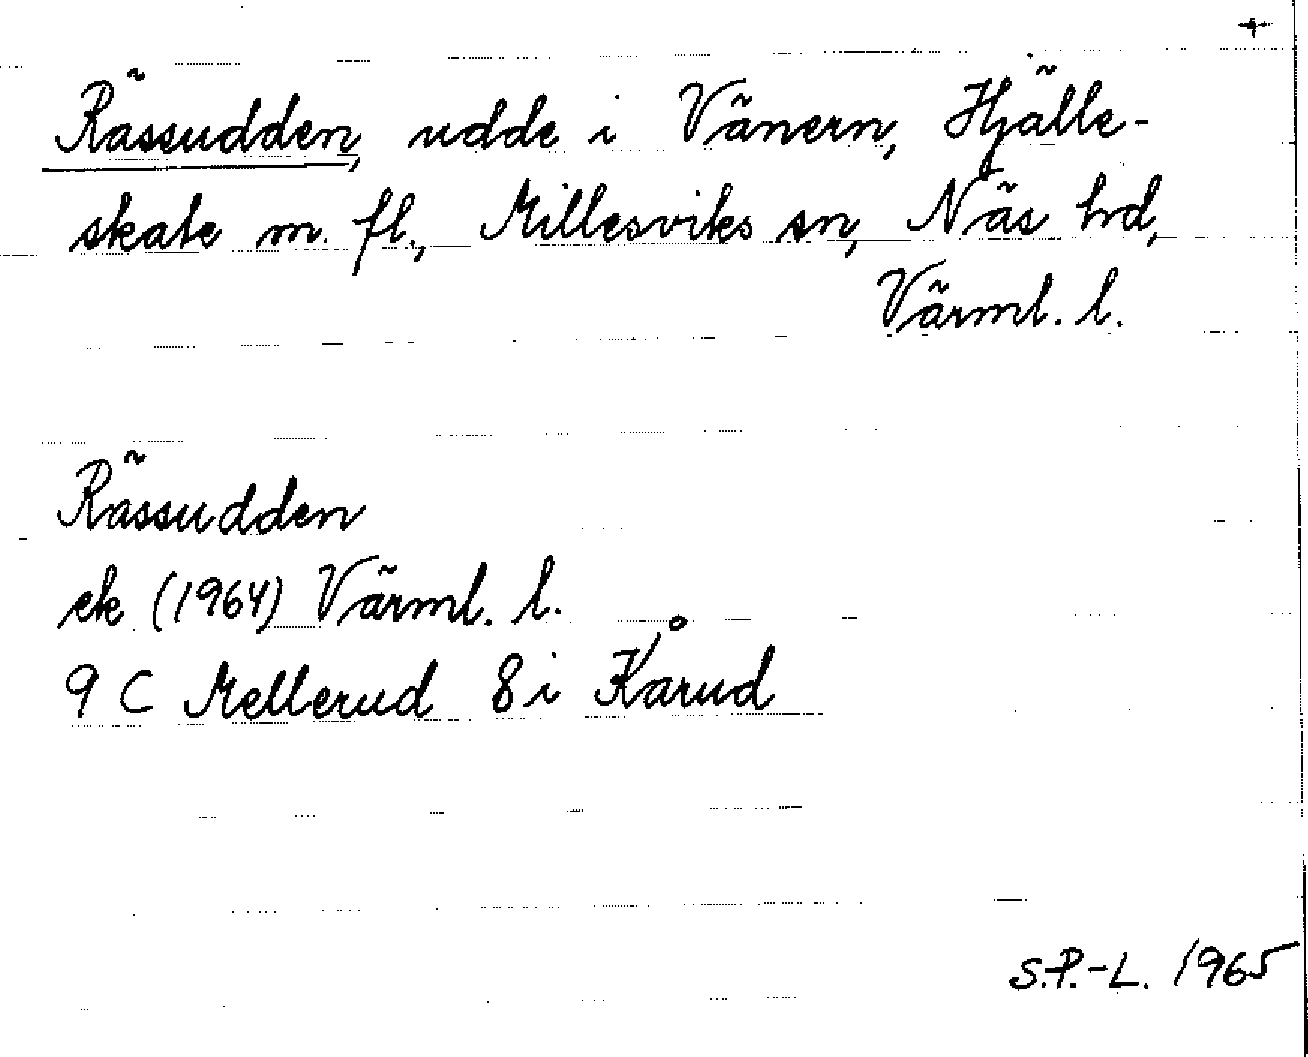 +
Rässudden, udde i Vänern, Hjälle-
skate m. fl., Millesviks sn, Näs hd,
Värml. l.
Rässudden
ek (1964) Värml. l.
9 C Mellerud 8 i Kårud
S.P.-L. 1965